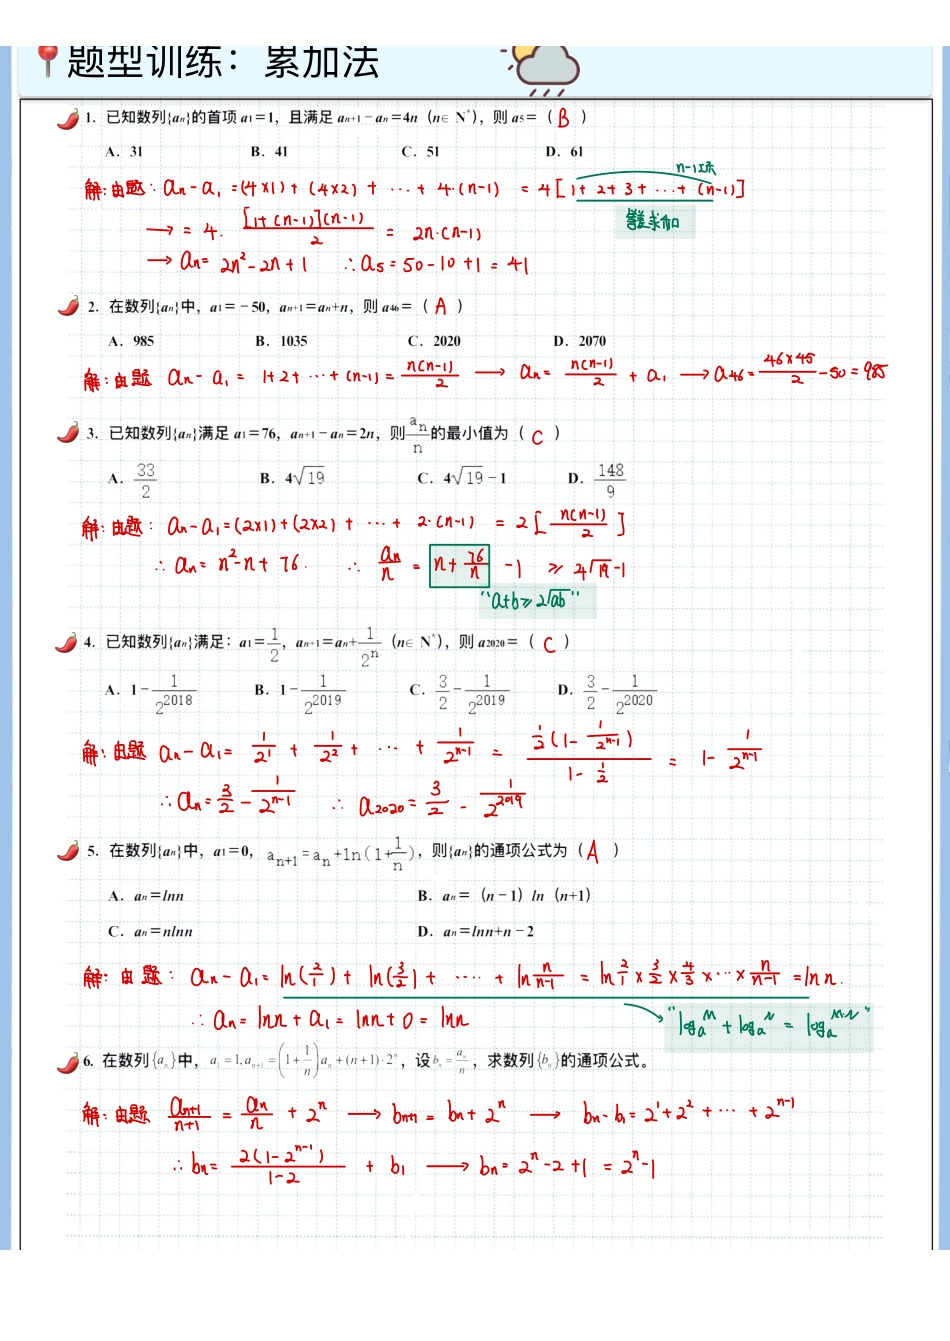 题型训练：累加法
1. 已知数列{aₙ}的首项 a₁=1，且满足 aₙ₊₁－aₙ=4n（n∈N*），则 a₅=（ B ）
A. 31 B. 41 C. 51 D. 61
n-1项
解:由题: aₙ-a₁=(4×1)+(4×2)+…+4·(n-1) = 4[1+2+3+…+(n-1)]
等差求和
→ = 4·[1+(n-1)](n-1)/2 = 2n·(n-1)
→ aₙ= 2n²-2n+1 ∴a₅=50-10+1=41
2. 在数列{aₙ}中，a₁=－50，aₙ₊₁=aₙ+n，则 a₄₆=（ A ）
A. 985 B. 1035 C. 2020 D. 2070
解:由题 aₙ-a₁= 1+2+…+(n-1)= n(n-1)/2 → aₙ= n(n-1)/2 + a₁ → a₄₆= 46×45/2 -50=985
3. 已知数列{aₙ}满足 a₁=76，aₙ₊₁－aₙ=2n，则 aₙ/n 的最小值为（ C ）
A. 33/2 B. 4√19 C. 4√19－1 D. 148/9
解:由题: aₙ-a₁=(2×1)+(2×2)+…+2·(n-1) = 2[n(n-1)/2]
∴aₙ= n²-n+76. ∴ aₙ/n = n+76/n -1 ≥ 4√19-1
"a+b≥2√ab"
4. 已知数列{aₙ}满足：a₁=1/2，aₙ₊₁=aₙ+1/2ⁿ（n∈N*），则 a₂₀₂₀=（ C ）
A. 1－1/2²⁰¹⁸ B. 1－1/2²⁰¹⁹ C. 3/2－1/2²⁰¹⁹ D. 3/2－1/2²⁰²⁰
解:由题 aₙ-a₁= 1/2¹ + 1/2² + … + 1/2ⁿ⁻¹ = ½(1-1/2ⁿ⁻¹)/(1-½) = 1-1/2ⁿ⁻¹
∴aₙ=3/2-1/2ⁿ⁻¹ ∴ a₂₀₂₀=3/2-1/2²⁰¹⁹
5. 在数列{aₙ}中，a₁=0，aₙ₊₁=aₙ+ln(1+1/n)，则{aₙ}的通项公式为（ A ）
A. aₙ=lnn B. aₙ=（n－1）ln（n+1）
C. aₙ=nlnn D. aₙ=lnn+n－2
解:由题: aₙ-a₁=ln(2/1)+ln(3/2)+…+ln n/(n-1) = ln 2/1×3/2×4/3×…×n/(n-1) =ln n.
∴aₙ= lnn+a₁= lnn+0= lnn
"logₐᴹ+logₐᴺ=logₐᴹ·ᴺ"
6. 在数列{aₙ}中，a₁=1,aₙ₊₁=(1+1/n)aₙ+(n+1)·2ⁿ，设bₙ=aₙ/n，求数列{bₙ}的通项公式。
解:由题 aₙ₊₁/(n+1) = aₙ/n + 2ⁿ → bₙ₊₁= bₙ+2ⁿ → bₙ-b₁=2¹+2²+…+2ⁿ⁻¹
∴bₙ= 2(1-2ⁿ⁻¹)/(1-2) + b₁ → bₙ=2ⁿ-2+1 =2ⁿ-1